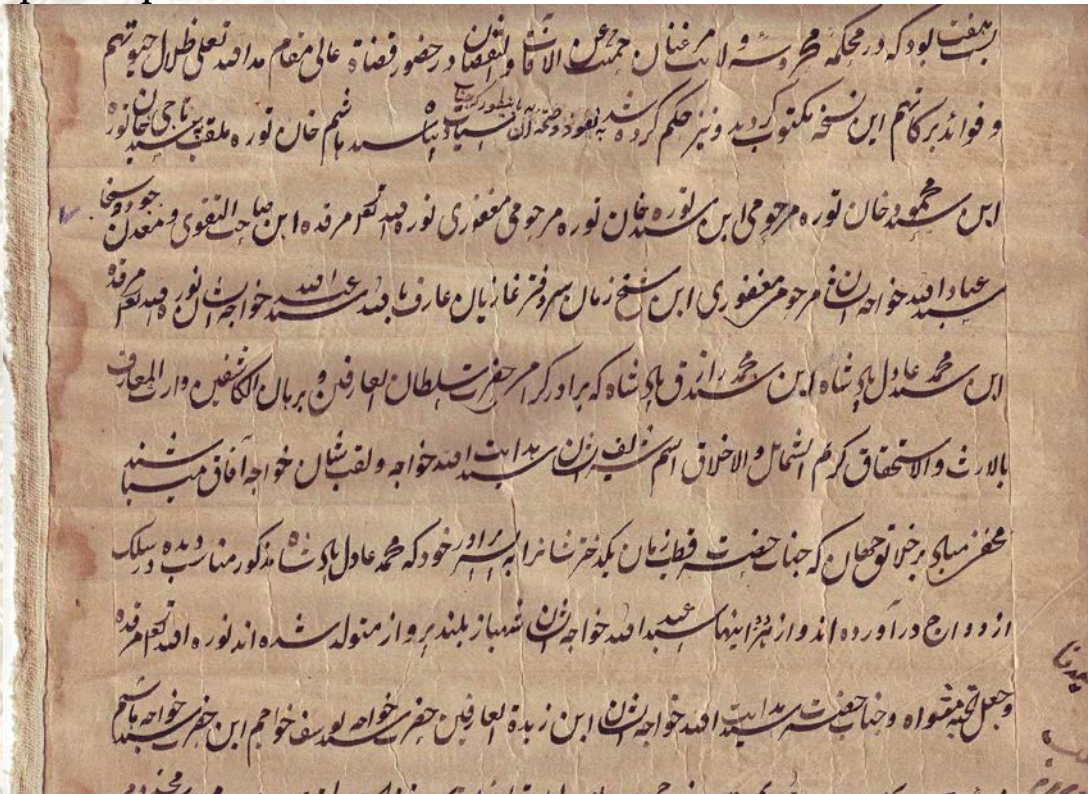 بهفت بود که در محکمه محروسه ولایت مرغنان حمیت عن الآفات والنقصان در حضور قضاة عالی مقام مد الله تعالی ظلال حیوتهم
و فوائد برکاتهم این نسخه مکتوب گردید و نیز حکم کرده شد به نفوذ سید هاشم خان توره ملقب
ابن سید محمود خان توره مرحومی ابن سید خان توره مرحومی مغفوری نوره الله تعالی مرقده ابن صاحب التقوی و معدن جود و سخا
سید عباد الله خواجه ایشان مرحوم مغفوری ابن شیخ زمان سردفتر غازیان عارف بالله سید عبد الله خواجه ایشان نوره الله تعالی مرقده
ابن سید محمد عادل پادشاه ابن سید محمد رازق پادشاه که برادر کرام حضرت سلطان العارفین و برهان الکاشفین وارث المعارف
بالارث والاستحقاق کریم الشمائل والاخلاق اسم شریف ایشان سید هدایت الله خواجه و لقب شان خواجه آفاق میباشند
مخفی مبادا بر خلائق جهان که جناب حضرت قطب زمان یک دختر شانرا به پسر برادر خود که محمد عادل پادشاه مذکور مناسب دیده در سلک
ازدواج در آورده اند و از اینها سید عبد الله خواجه ایشان شهباز بلند پرواز متولد شده اند نوره الله تعالی مرقده
وجعل الجنة مثواه و جناب حضرت سید هدایت الله خواجه ایشان ابن زبدة العارفین حضرت خواجه سید یوسف خواجم ابن حضرت خواجه سید هاشم